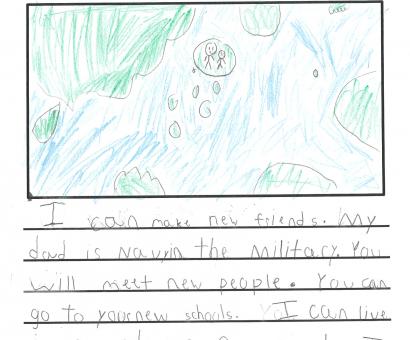 I can make new friends. My
dad is Navyin the military. You
will meet new people. You can
go to yournew schools. I can live